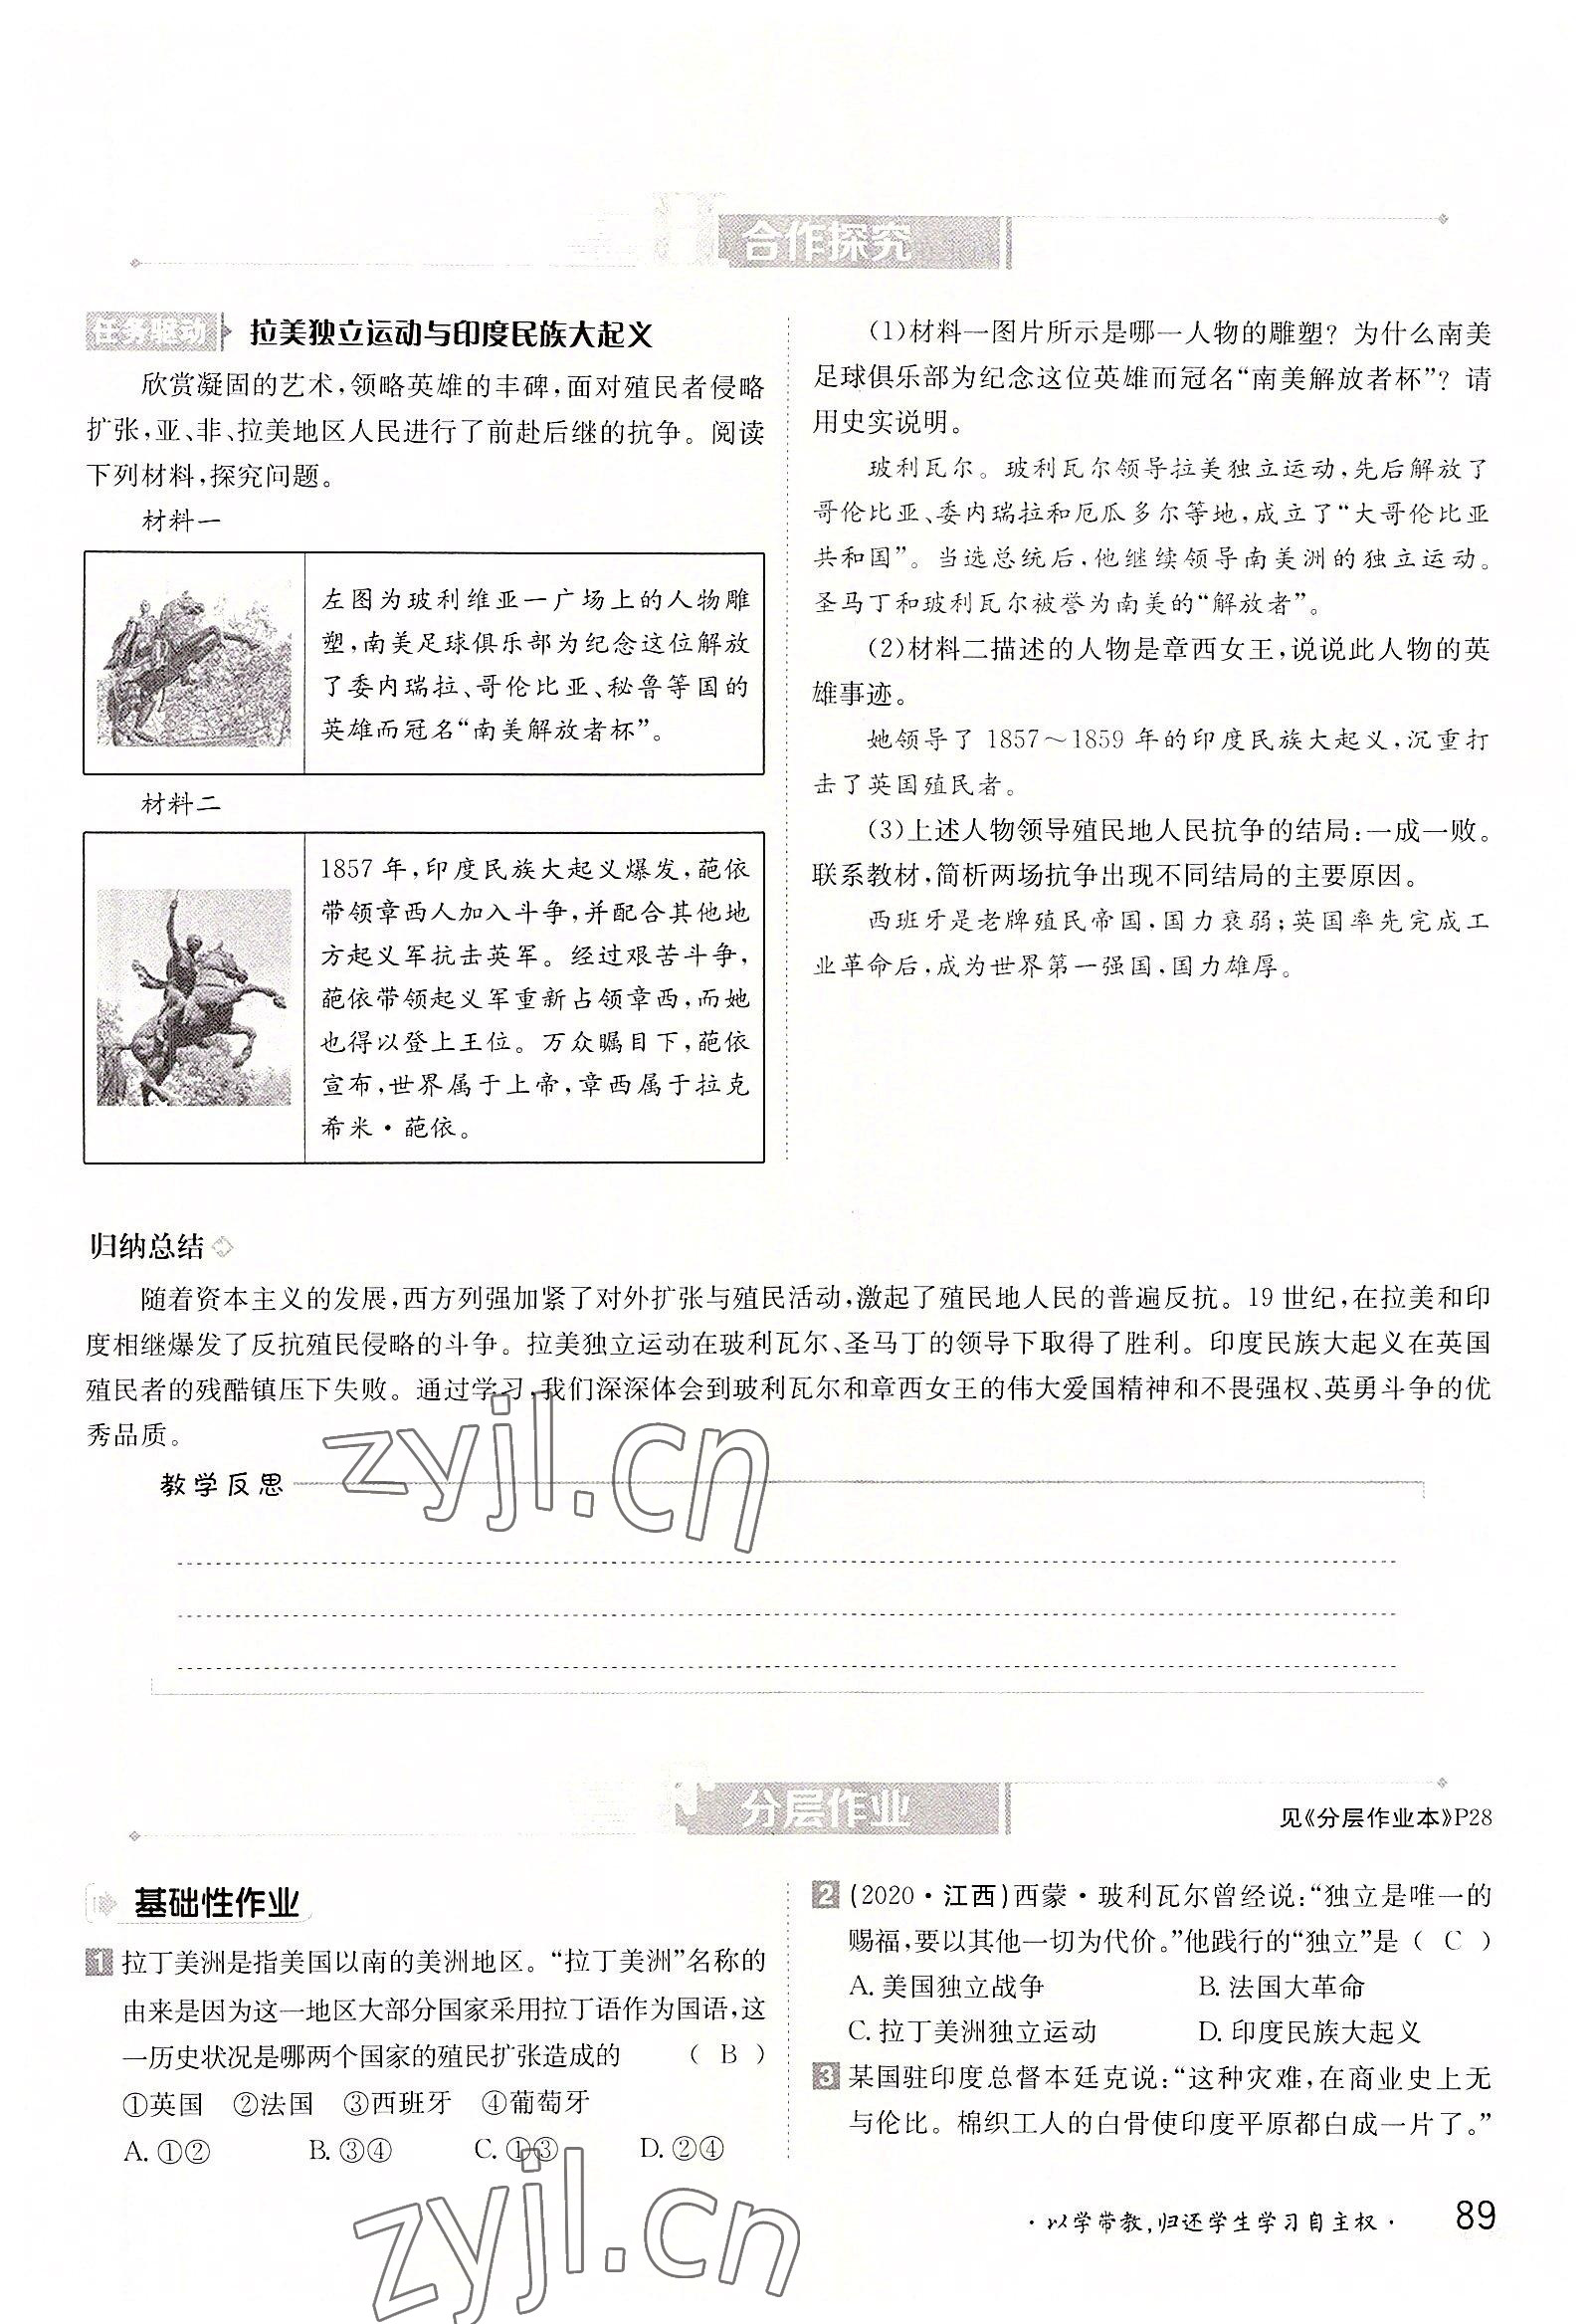 合作探究
任务驱动 拉美独立运动与印度民族大起义
欣赏凝固的艺术,领略英雄的丰碑,面对殖民者侵略
扩张,亚、非、拉美地区人民进行了前赴后继的抗争。阅读
下列材料,探究问题。
材料一
左图为玻利维亚一广场上的人物雕
塑,南美足球俱乐部为纪念这位解放
了委内瑞拉、哥伦比亚、秘鲁等国的
英雄而冠名“南美解放者杯”。
材料二
1857 年,印度民族大起义爆发,葩依
带领章西人加入斗争,并配合其他地
方起义军抗击英军。经过艰苦斗争,
葩依带领起义军重新占领章西,而她
也得以登上王位。万众瞩目下,葩依
宣布,世界属于上帝,章西属于拉克
希米·葩依。
(1)材料一图片所示是哪一人物的雕塑？为什么南美
足球俱乐部为纪念这位英雄而冠名“南美解放者杯”？请
用史实说明。
玻利瓦尔。玻利瓦尔领导拉美独立运动,先后解放了
哥伦比亚、委内瑞拉和厄瓜多尔等地,成立了“大哥伦比亚
共和国”。当选总统后,他继续领导南美洲的独立运动。
圣马丁和玻利瓦尔被誉为南美的“解放者”。
(2)材料二描述的人物是章西女王,说说此人物的英
雄事迹。
她领导了 1857～1859 年的印度民族大起义,沉重打
击了英国殖民者。
(3)上述人物领导殖民地人民抗争的结局:一成一败。
联系教材,简析两场抗争出现不同结局的主要原因。
西班牙是老牌殖民帝国,国力衰弱;英国率先完成工
业革命后,成为世界第一强国,国力雄厚。
归纳总结
随着资本主义的发展,西方列强加紧了对外扩张与殖民活动,激起了殖民地人民的普遍反抗。19 世纪,在拉美和印
度相继爆发了反抗殖民侵略的斗争。拉美独立运动在玻利瓦尔、圣马丁的领导下取得了胜利。印度民族大起义在英国
殖民者的残酷镇压下失败。通过学习,我们深深体会到玻利瓦尔和章西女王的伟大爱国精神和不畏强权、英勇斗争的优
秀品质。
zyjl.cn
教学反思
分层作业
见《分层作业本》P28
基础性作业
1 拉丁美洲是指美国以南的美洲地区。“拉丁美洲”名称的
由来是因为这一地区大部分国家采用拉丁语作为国语,这
一历史状况是哪两个国家的殖民扩张造成的 ( B )
①英国 ②法国 ③西班牙 ④葡萄牙
A. ①② B. ③④ C. ①③ D. ②④
2 (2020·江西)西蒙·玻利瓦尔曾经说:“独立是唯一的
赐福,要以其他一切为代价。”他践行的“独立”是 ( C )
A. 美国独立战争 B. 法国大革命
C. 拉丁美洲独立运动 D. 印度民族大起义
3 某国驻印度总督本廷克说:“这种灾难,在商业史上无
与伦比。棉织工人的白骨使印度平原都白成一片了。”
zyjl.cn
·以学带教,归还学生学习自主权· 89